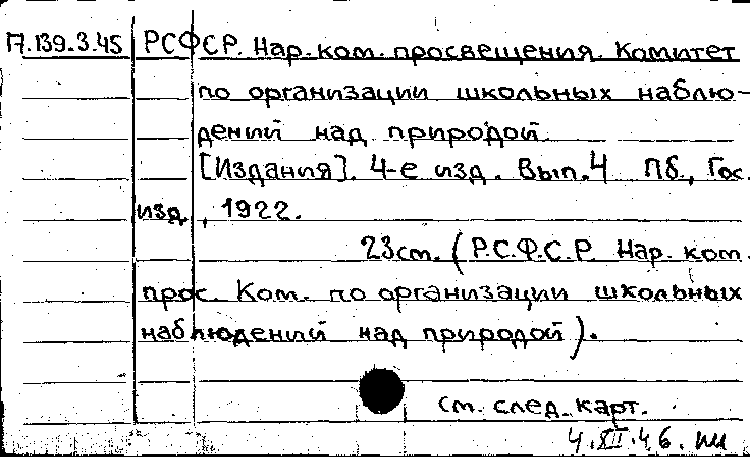 П.139.3.45 РСФСР. Нар. ком. просвещения. Комитет
по организации школьных наблю-
дений над природой
[Издания]. 4-е изд. Вып. 4 Пб., Гос.
изд., 1922.
23 cm. (Р.С.Ф.С.Р. Нар. ком.
прос. Ком. по организации школьных
наблюдений над природой).
см. след. карт.
4.XII.46.